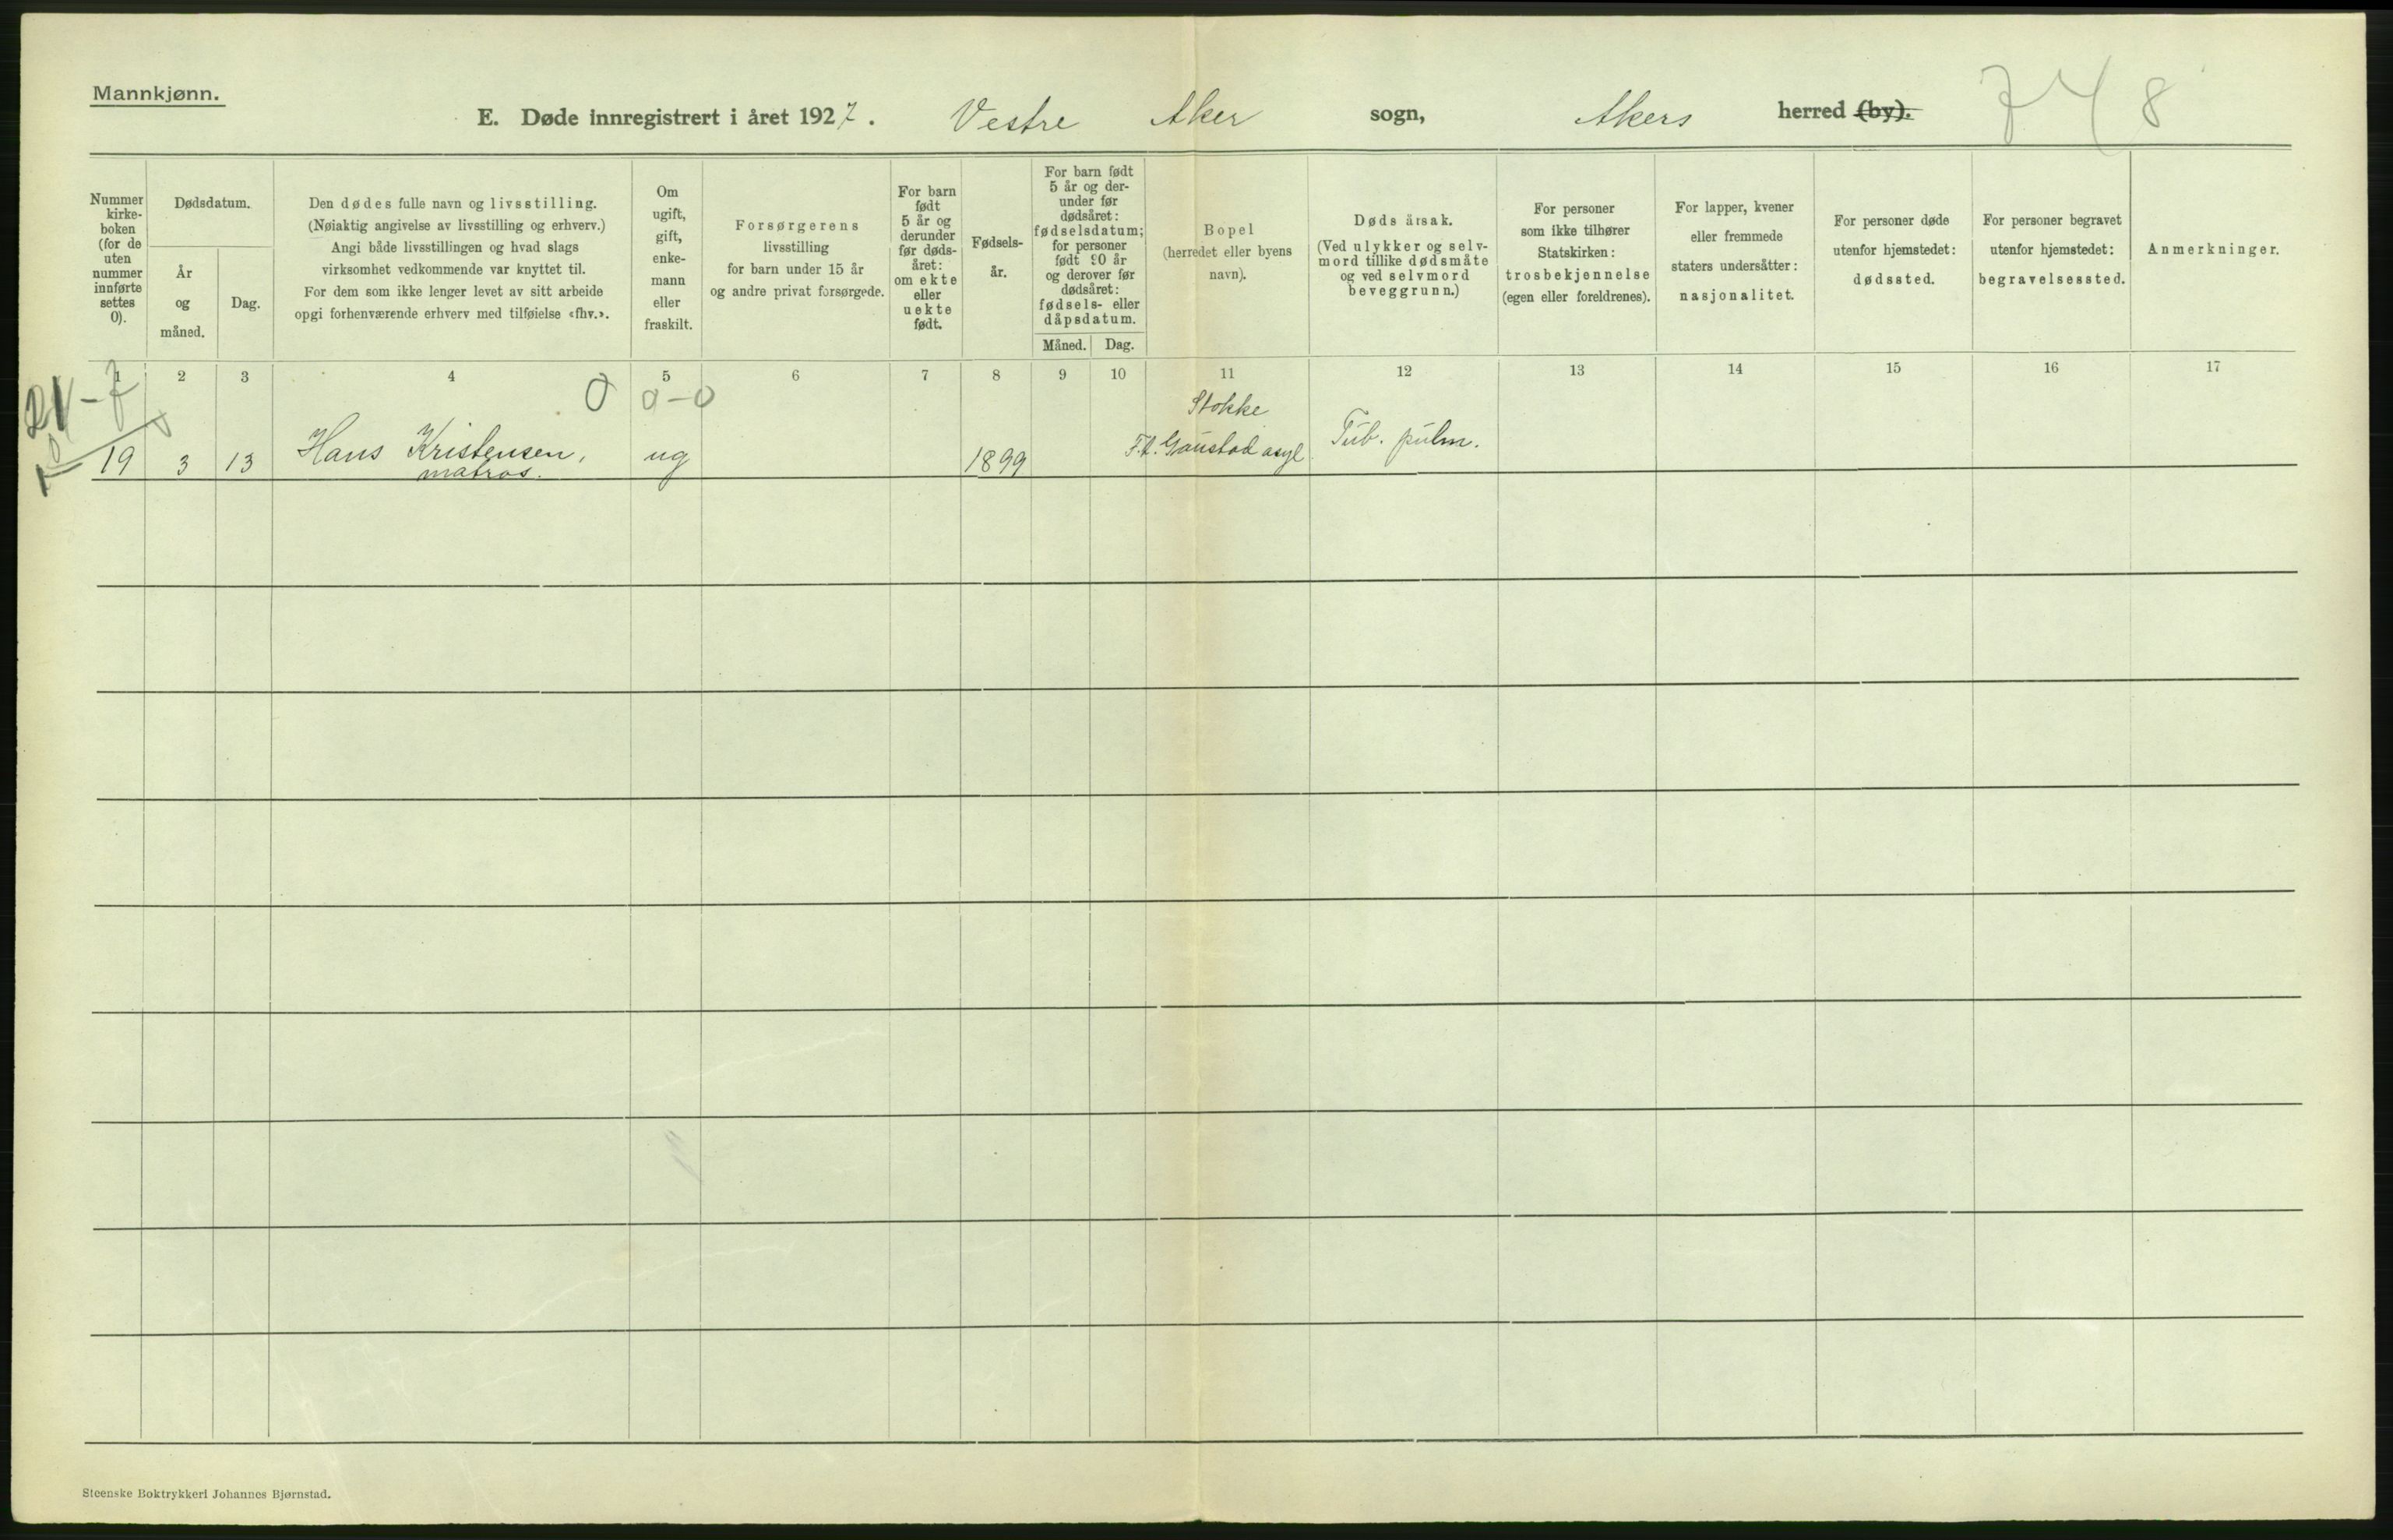 Mannkjønn.
E. Døde innregistrert i året 1927. Vestre Aker sogn, Akers herred (by). 748
Nummer kirke-boken (for de uten nummer innførte settes 0).
Dødsdatum.
År og måned.
Dag.
Den dødes fulle navn og livsstilling.
(Nøiaktig angivelse av livsstilling og erhverv.)
Angi både livsstillingen og hvad slags
virksomhet vedkommende var knyttet til.
For dem som ikke lenger levet av sitt arbeide
opgi forhenværende erhverv med tilføielse «fhv.».
Om ugift, gift, enke-mann eller fraskilt.
Forsørgerens
livsstilling
for barn under 15 år
og andre privat forsørgede.
For barn født 5 år og derunder før døds-året: om ekte eller uekte født.
Fødsels-år.
For barn født 5 år og der-under før dødsåret: fødselsdatum; for personer født 90 år og derover før dødsåret: fødsels- eller dåpsdatum.
Måned. Dag.
Bopel
(herredet eller byens
navn).
Dødsårsak.
(Ved ulykker og selv-
mord tillike dødsmåte
og ved selvmord
beveggrunn.)
For personer
som ikke tilhører
Statskirken:
trosbekjennelse
(egen eller foreldrenes).
For lapper, kvener
eller fremmede
staters undersåtter:
nasjonalitet.
For personer døde
utenfor hjemstedet:
dødssted.
For personer begravet
utenfor hjemstedet:
begravelsessted.
Anmerkninger.
1 2 3 4 5 6 7 8 9 10 11 12 13 14 15 16 17
21-7
0 0-0
Stokke
19 3 13 Hans Kristensen, ug 1899 F.t. Gaustad asyl. Tub. pulm.
matros.
Steenske Boktrykkeri Johannes Bjørnstad.